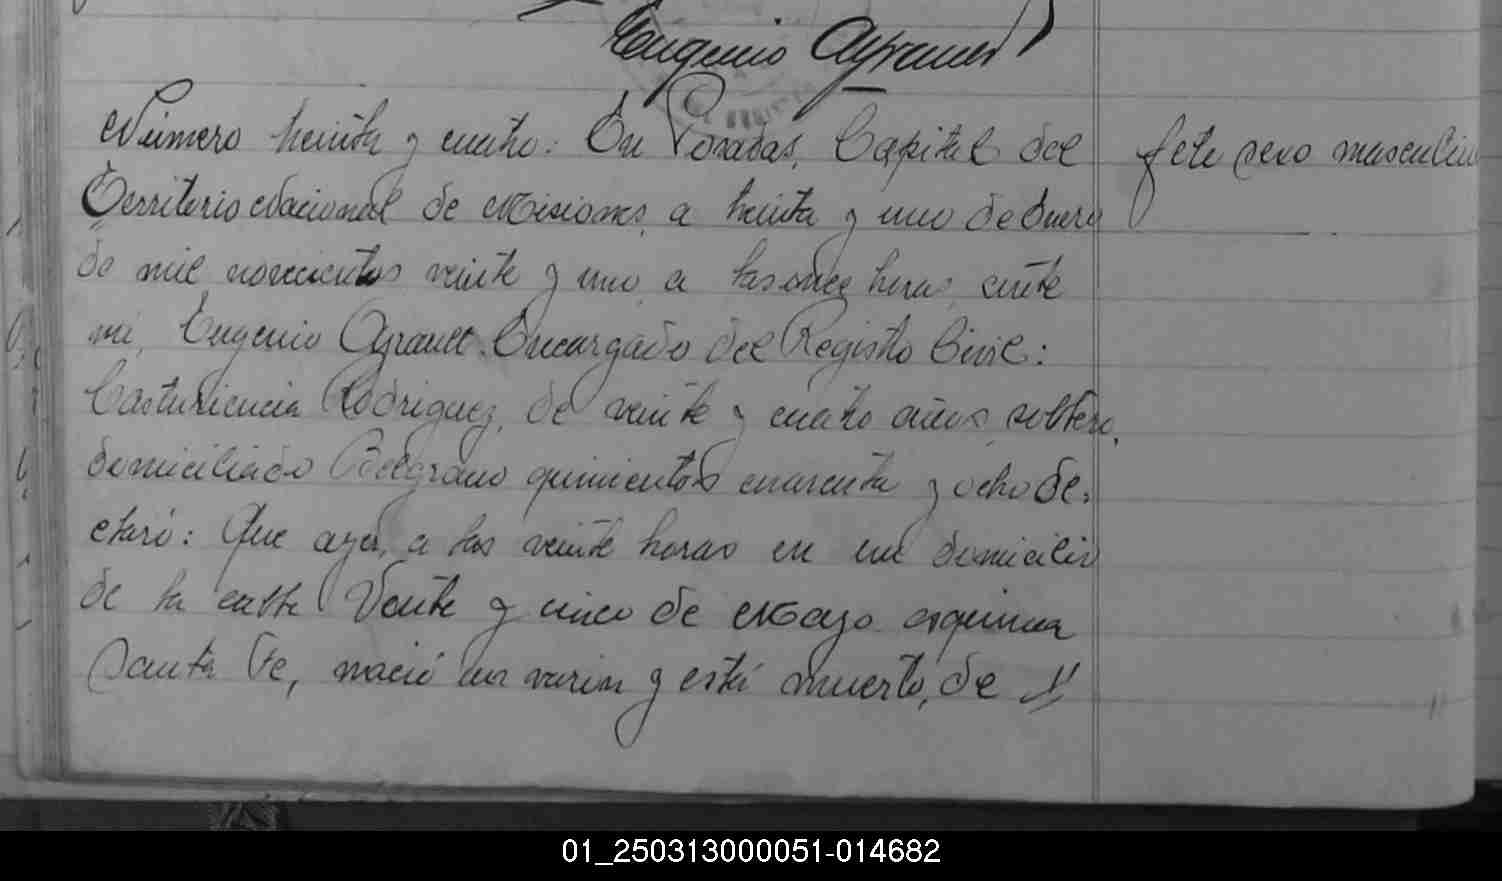 Eugenio Ayrault
Número treinta y cuatro: En Posadas, Capital del
Territorio Nacional de Misiones, a treinta y uno de Enero
de mil novecientos veinte y uno, a las once horas, ante
mi, Eugenio Ayrault. Encargado del Registro Civil:
Rodriguez, de veinte y cuatro años, soltero,
domiciliado Belgrano quinientos cuarenta y ocho de-
claró: Que ayer, a las veinte horas en un domicilio
de la calle Veinte y cinco de Mayo esquina
Santa Fe, nació un varon y está muerto, de //
feto sexo masculino
01_250313000051-014682